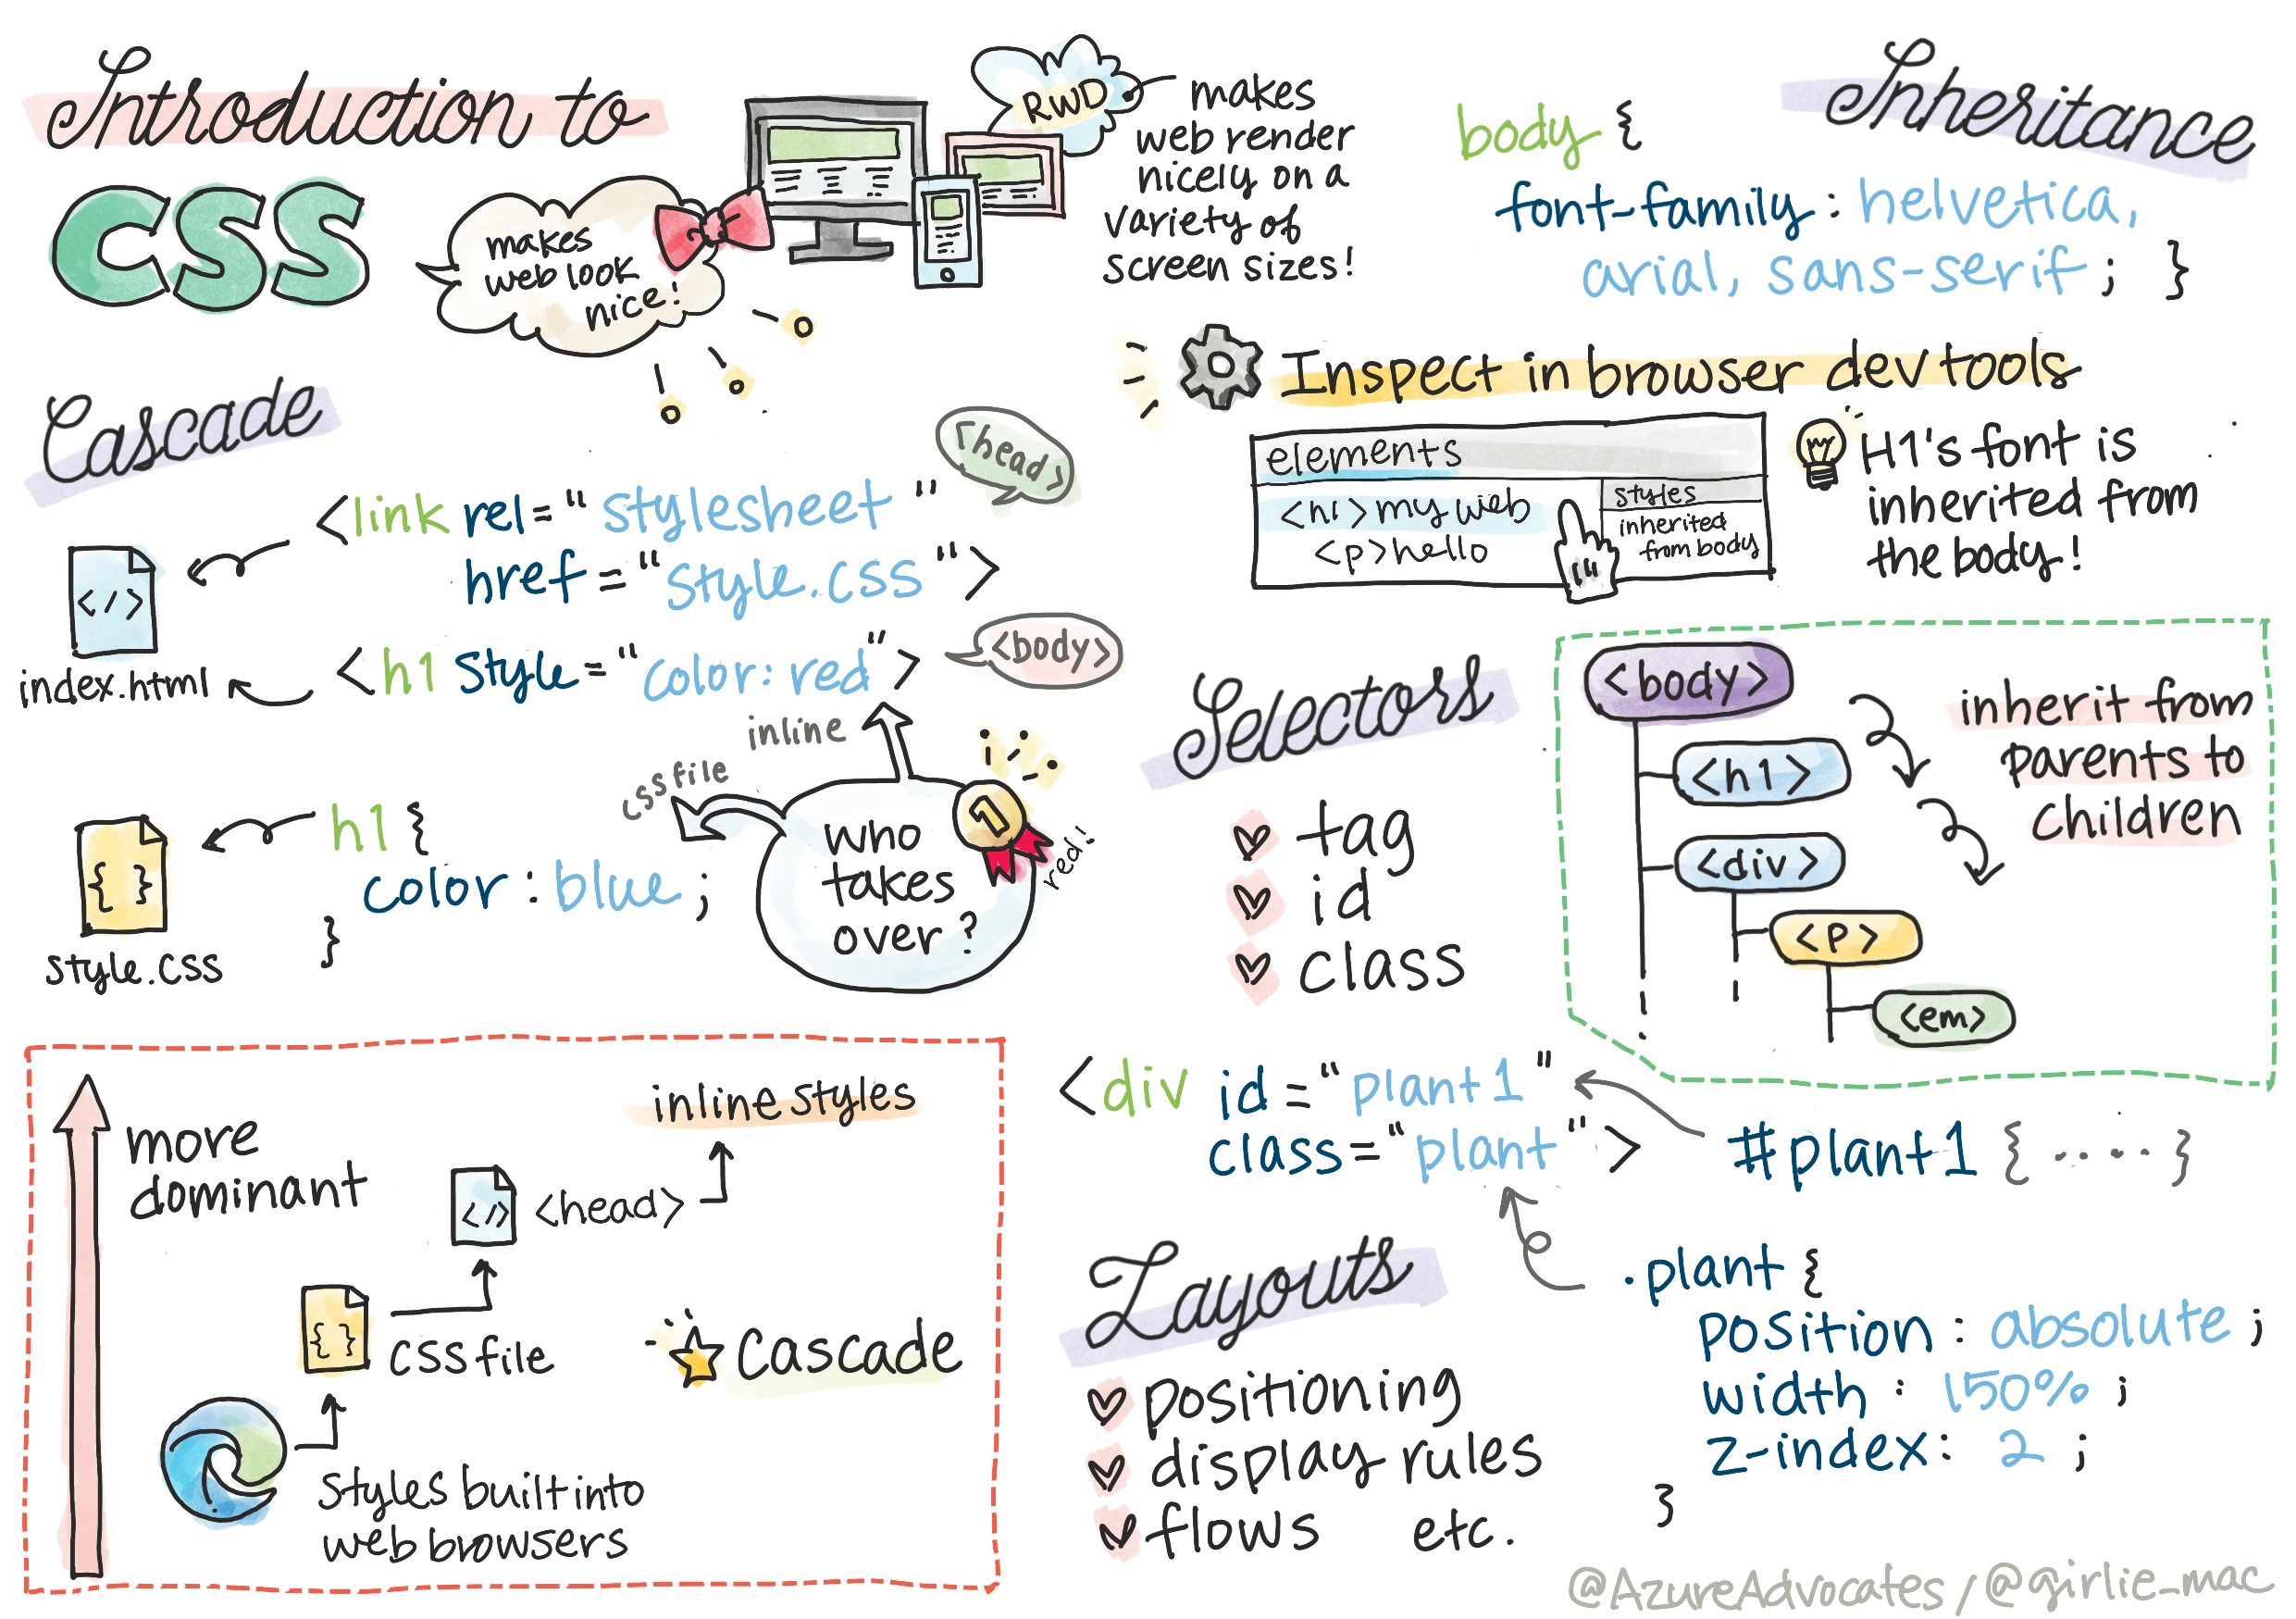 Introduction to
CSS
makes
web look
nice!
RWD
makes
web render
nicely on a
variety of
screen sizes!
Cascade
<head>
<link rel="stylesheet"
href="style.css">
</>
index.html
<h1 style="color:red">
<body>
inline
css file
h1 {
color:blue;
}
{ }
style.css
who
takes
over?
1
red!
more
dominant
inline styles
</>
<head>
{ }
CSS file
Cascade
styles built into
web browsers
Inheritance
body {
font-family: helvetica,
arial, sans-serif; }
Inspect in browser dev tools
elements
<h1>my web
<p>hello
styles
inherited
from body
H1's font is
inherited from
the body!
Selectors
tag
id
class
<body>
<h1>
<div>
<p>
<em>
inherit from
parents to
children
<div id="plant1"
class="plant">
#plant1 {.....}
.plant {
position: absolute;
width: 150%;
z-index: 2;
}
Layouts
positioning
display rules
flows etc.
@AzureAdvocates/@girlie_mac